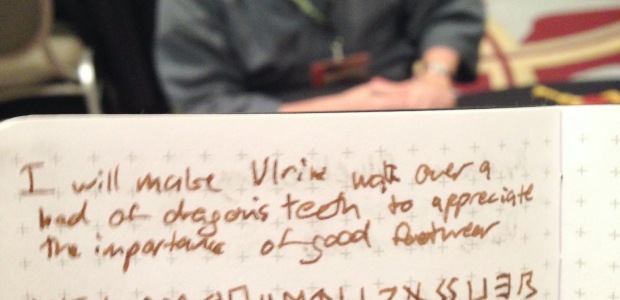 I will make Ulrik walk over a
bed of dragon's teeth to appreciate
the importance of good footwear